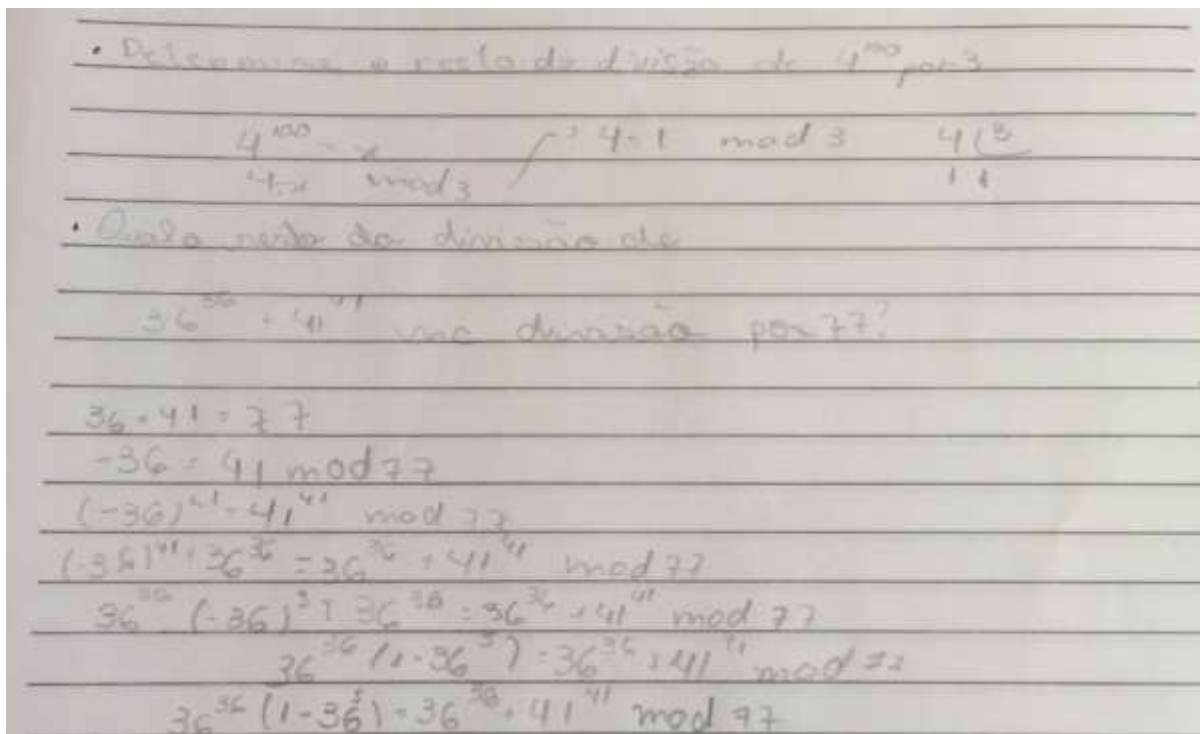 • Determine o resto da divisão de 4^100 por 3
4^100 = x → 4=1 mod 3 4 | 3
4=x mod 3 1 1
• Qual o resto da divisão de
36^36 + 41^41 na divisão por 77?
36+41=77
-36=41 mod 77
(-36)^41=41^41 mod 77
(-36)^41+36^36=36^36+41^41 mod 77
36^36 (-36)^5+36^36=36^36+41^41 mod 77
36^36 (1-36^5)=36^36+41^41 mod 77
36^36 (1-36^5)=36^36+41^41 mod 77